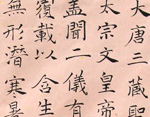 大唐三藏聖
太宗文皇帝
盖聞二儀有
覆載以含生
無形潛寒暑